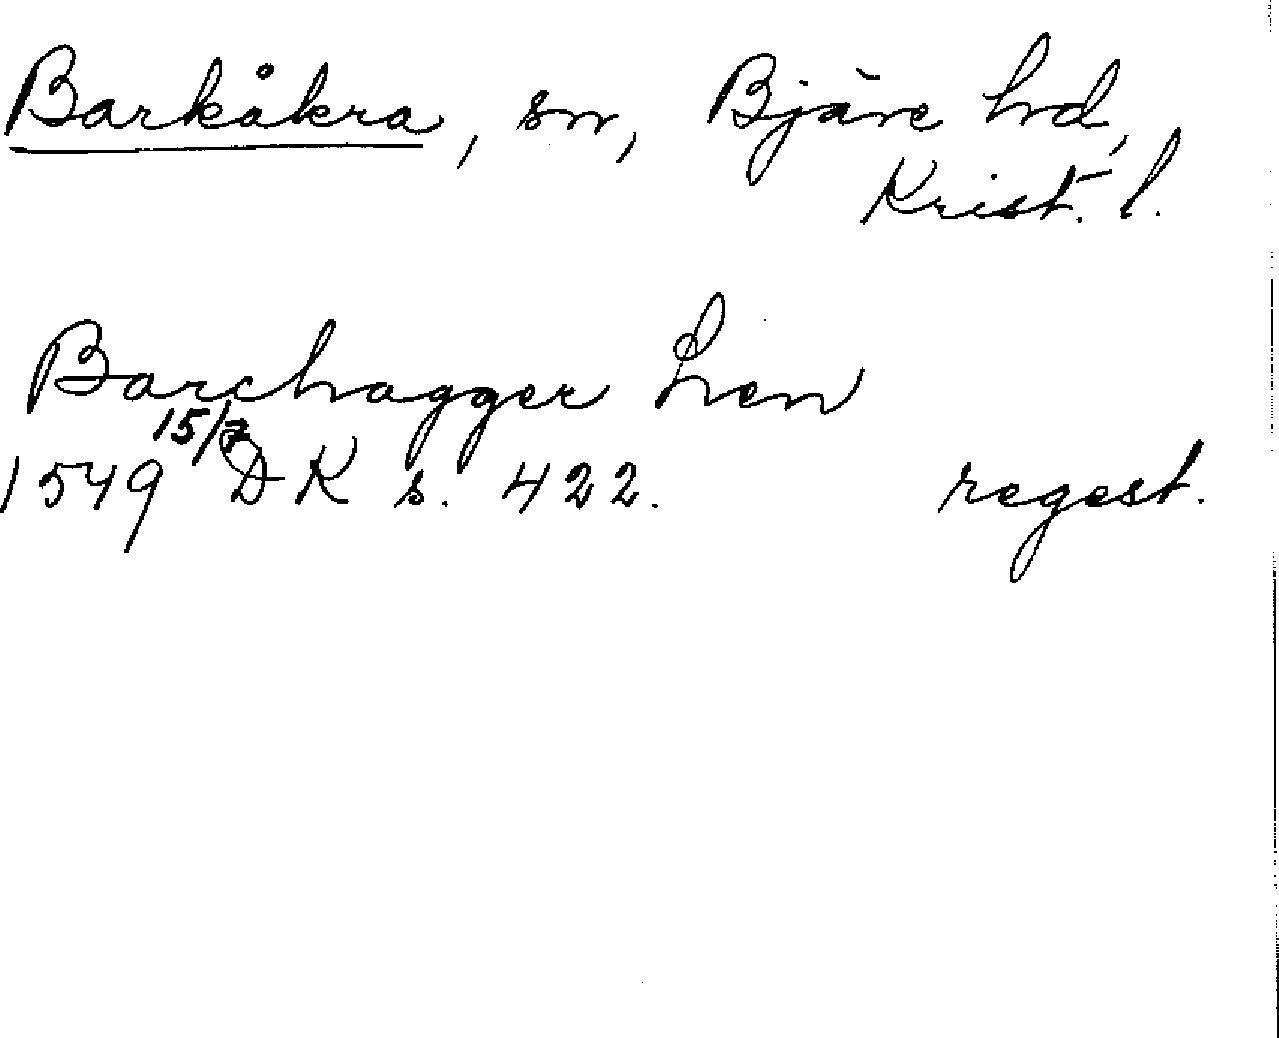 Barkåkra, sn, Bjäre hd,
Krist. l.
Barchagger Len
1549 15/7 DK s. 422. regest.